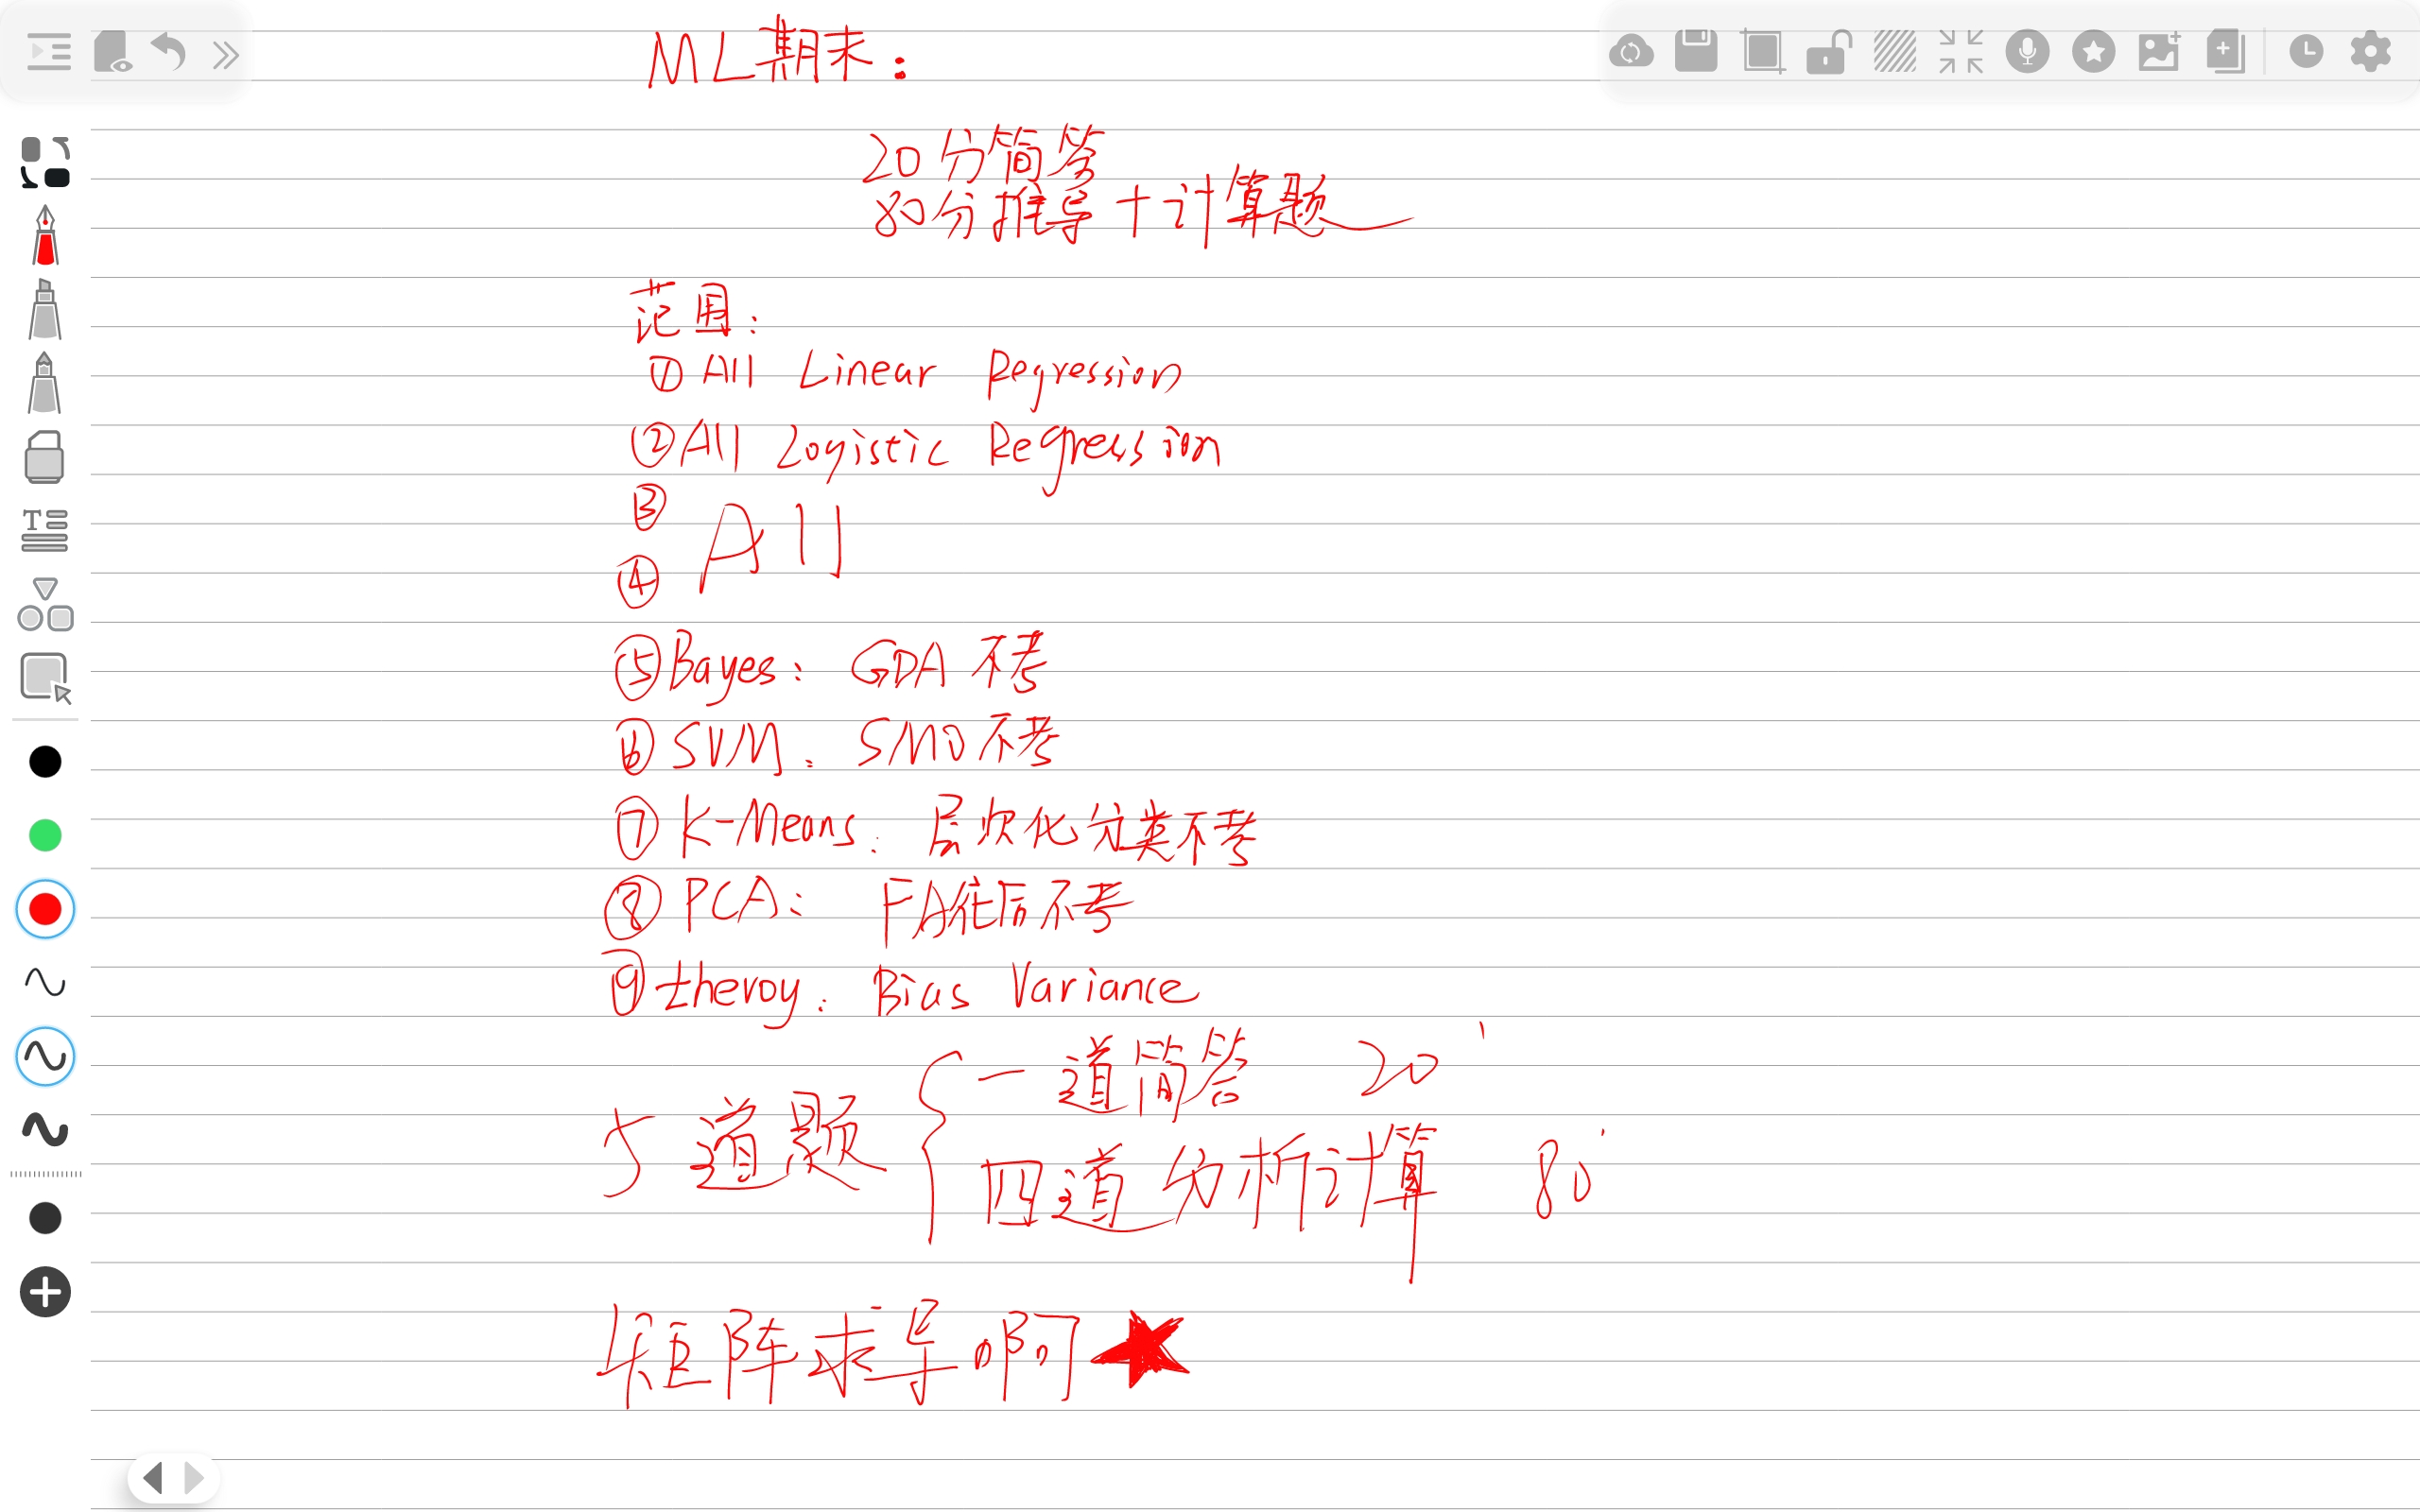 ML期末：
20分简答
80分推导+计算题
范围：
①All Linear Regression
②All Logistic Regression
③
All
④
⑤Bayes: GDA不考
⑥SVM: SMO不考
⑦K-Means: 层次化分类不考
⑧PCA: FA往后不考
⑨theroy: Bias Variance
一道简答 20'
5道题
四道分析计算 80'
矩阵求导啊★